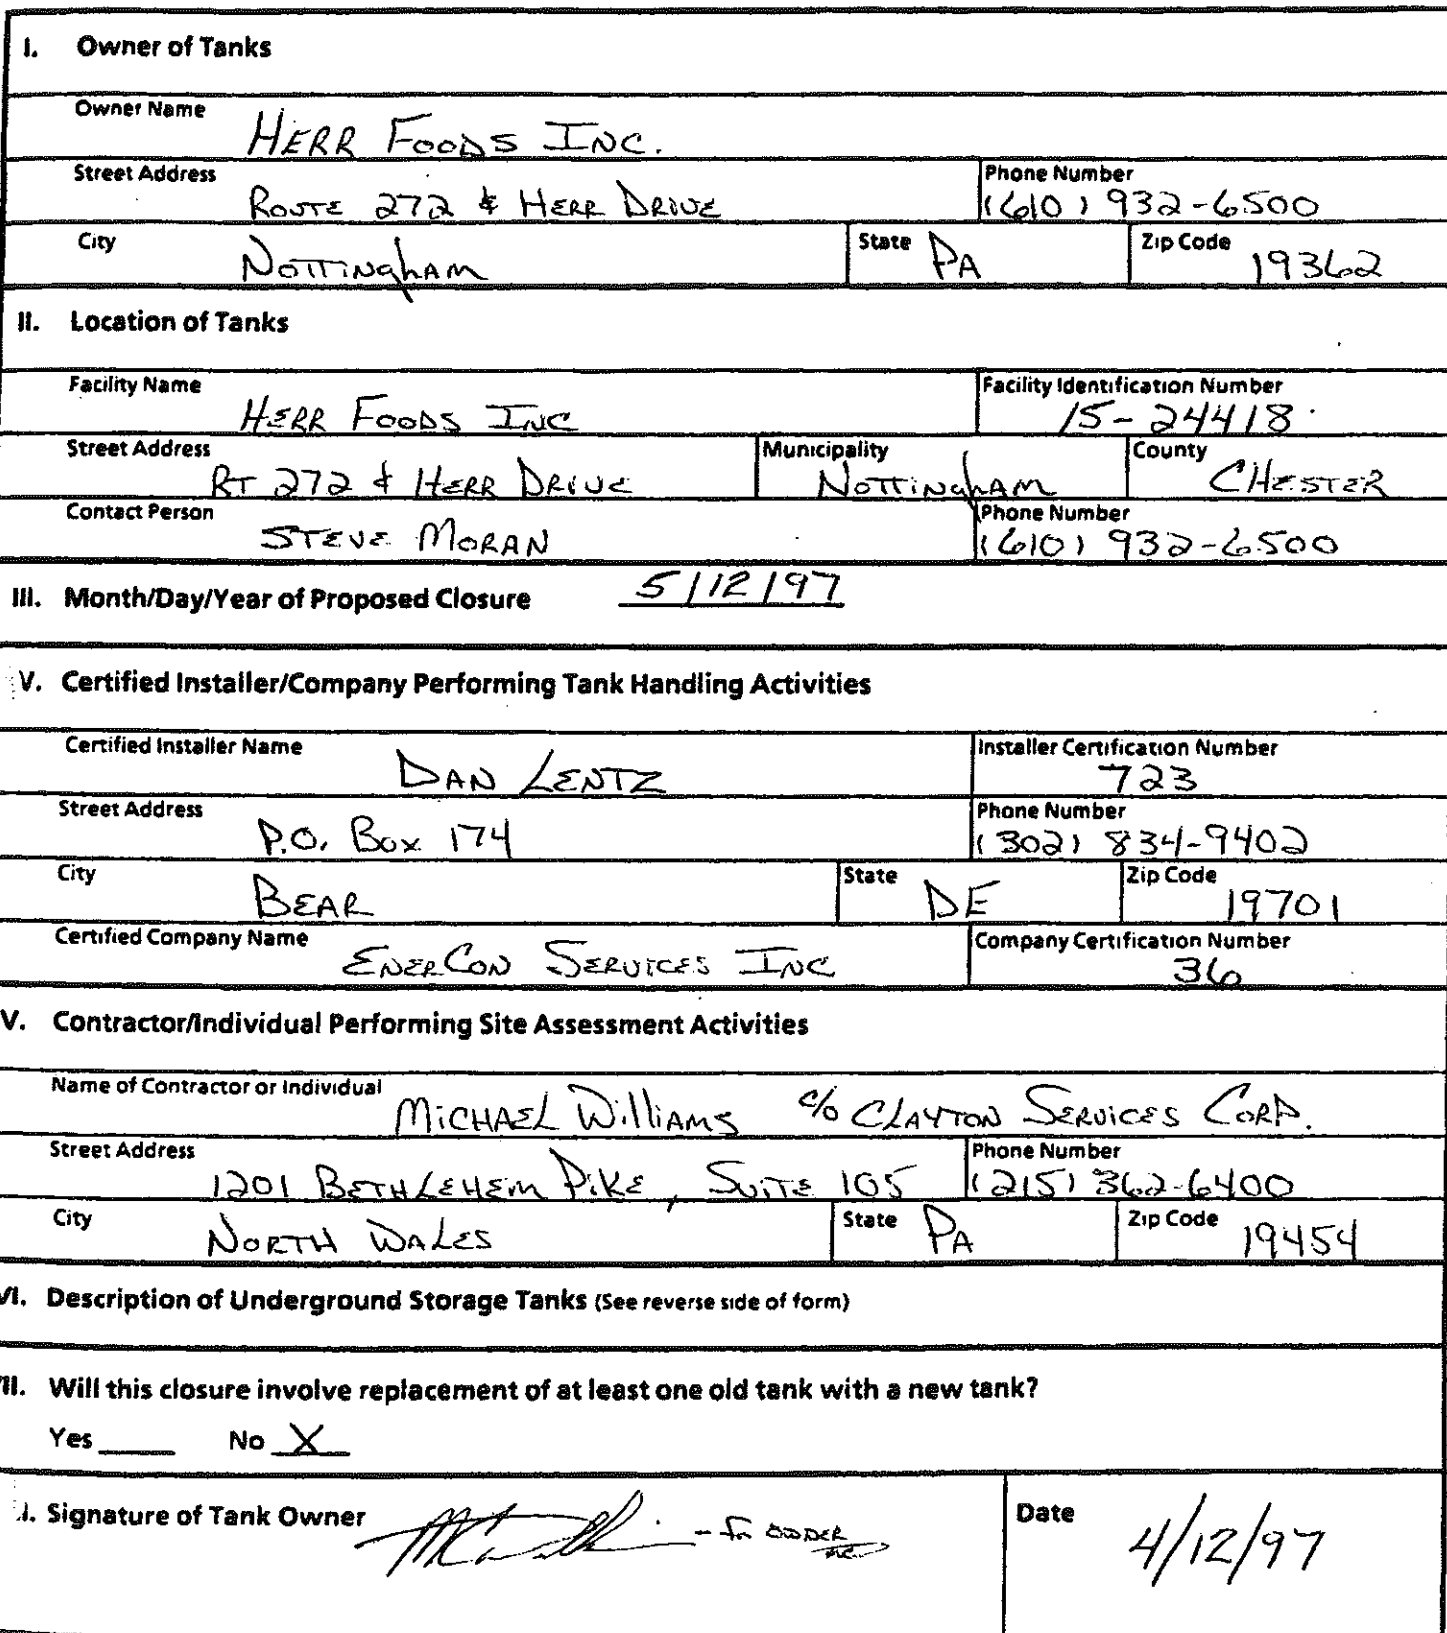 I. Owner of Tanks
Owner Name HERR FOODS INC.
Street Address ROUTE 272 & HERR DRIVE Phone Number (610) 932-6500
City NOTTINGHAM State PA Zip Code 19362
II. Location of Tanks
Facility Name HERR FOODS INC Facility Identification Number 15-24418
Street Address RT 272 & HERR DRIVE Municipality NOTTINGHAM County CHESTER
Contact Person STEVE MORAN Phone Number (610) 932-6500
III. Month/Day/Year of Proposed Closure 5/12/97
V. Certified Installer/Company Performing Tank Handling Activities
Certified Installer Name DAN LENTZ Installer Certification Number 723
Street Address P.O. BOX 174 Phone Number (302) 834-9402
City BEAR State DE Zip Code 19701
Certified Company Name ENERCON SERVICES INC Company Certification Number 36
V. Contractor/Individual Performing Site Assessment Activities
Name of Contractor or Individual MICHAEL WILLIAMS c/o CLAYTON SERVICES CORP.
Street Address 1201 BETHLEHEM PIKE, SUITE 105 Phone Number (215) 362-6400
City NORTH WALES State PA Zip Code 19454
VI. Description of Underground Storage Tanks (See reverse side of form)
II. Will this closure involve replacement of at least one old tank with a new tank?
Yes ____ No X
I. Signature of Tank Owner - for OWNER Date 4/12/97